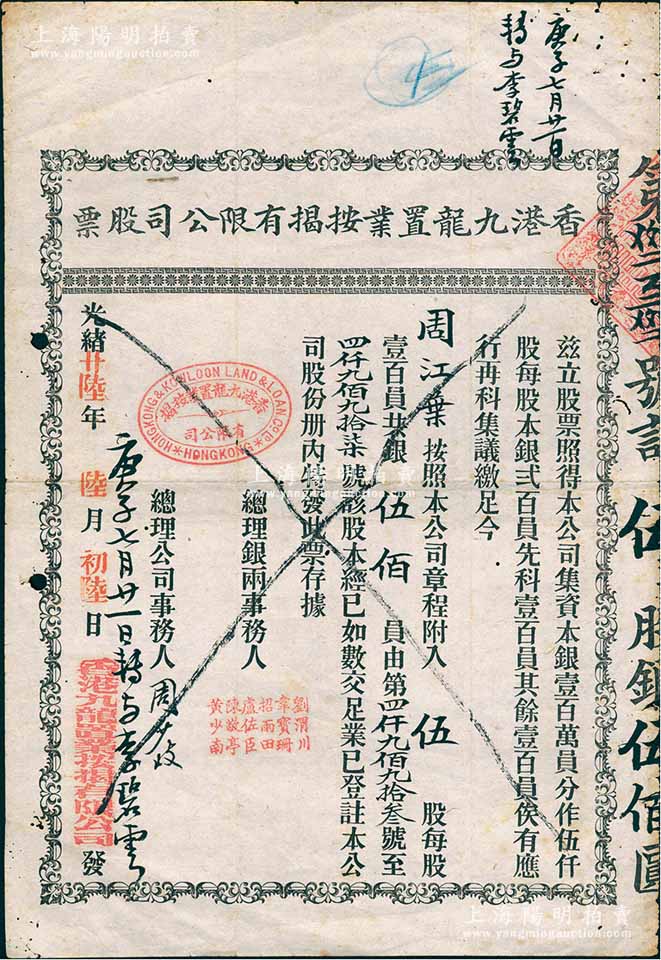 上海陽明拍賣
www.yangmingauction.com
庚子七月廿一日
轉与李碧雲
香港九龍置業按揭有限公司股票
號計 伍 股銀伍佰圓
茲立股票照得本公司集資本銀壹百萬員分作伍仟
股每股本銀弍百員先科壹百員其餘壹百員俟有應
行再科集議繳足今
周江葉 按照本公司章程附入 伍 股每股
壹百員共銀 伍佰 員由第四仟九佰九拾叁號至
四仟九佰九拾柒號該股本經已如數交足業已登註本公
司股份册內特發此票存據
總理銀兩事務人
劉渭川
韋寶珊
招雨田
盧佐臣
陳敬亭
黃少南
總理公司事務人 周少岐
庚子七月廿一日轉与李碧雲
光緒廿陸年 陸月初陸日 香港九龍置業按揭有限公司 發
HONGKONG & KOWLOON LAND & LOAN Co LD
香港九龍置業按揭
有限公司
HONGKONG
上海陽明拍賣
www.yangmingauction.com
上海陽明拍賣
www.yangmingauction.com